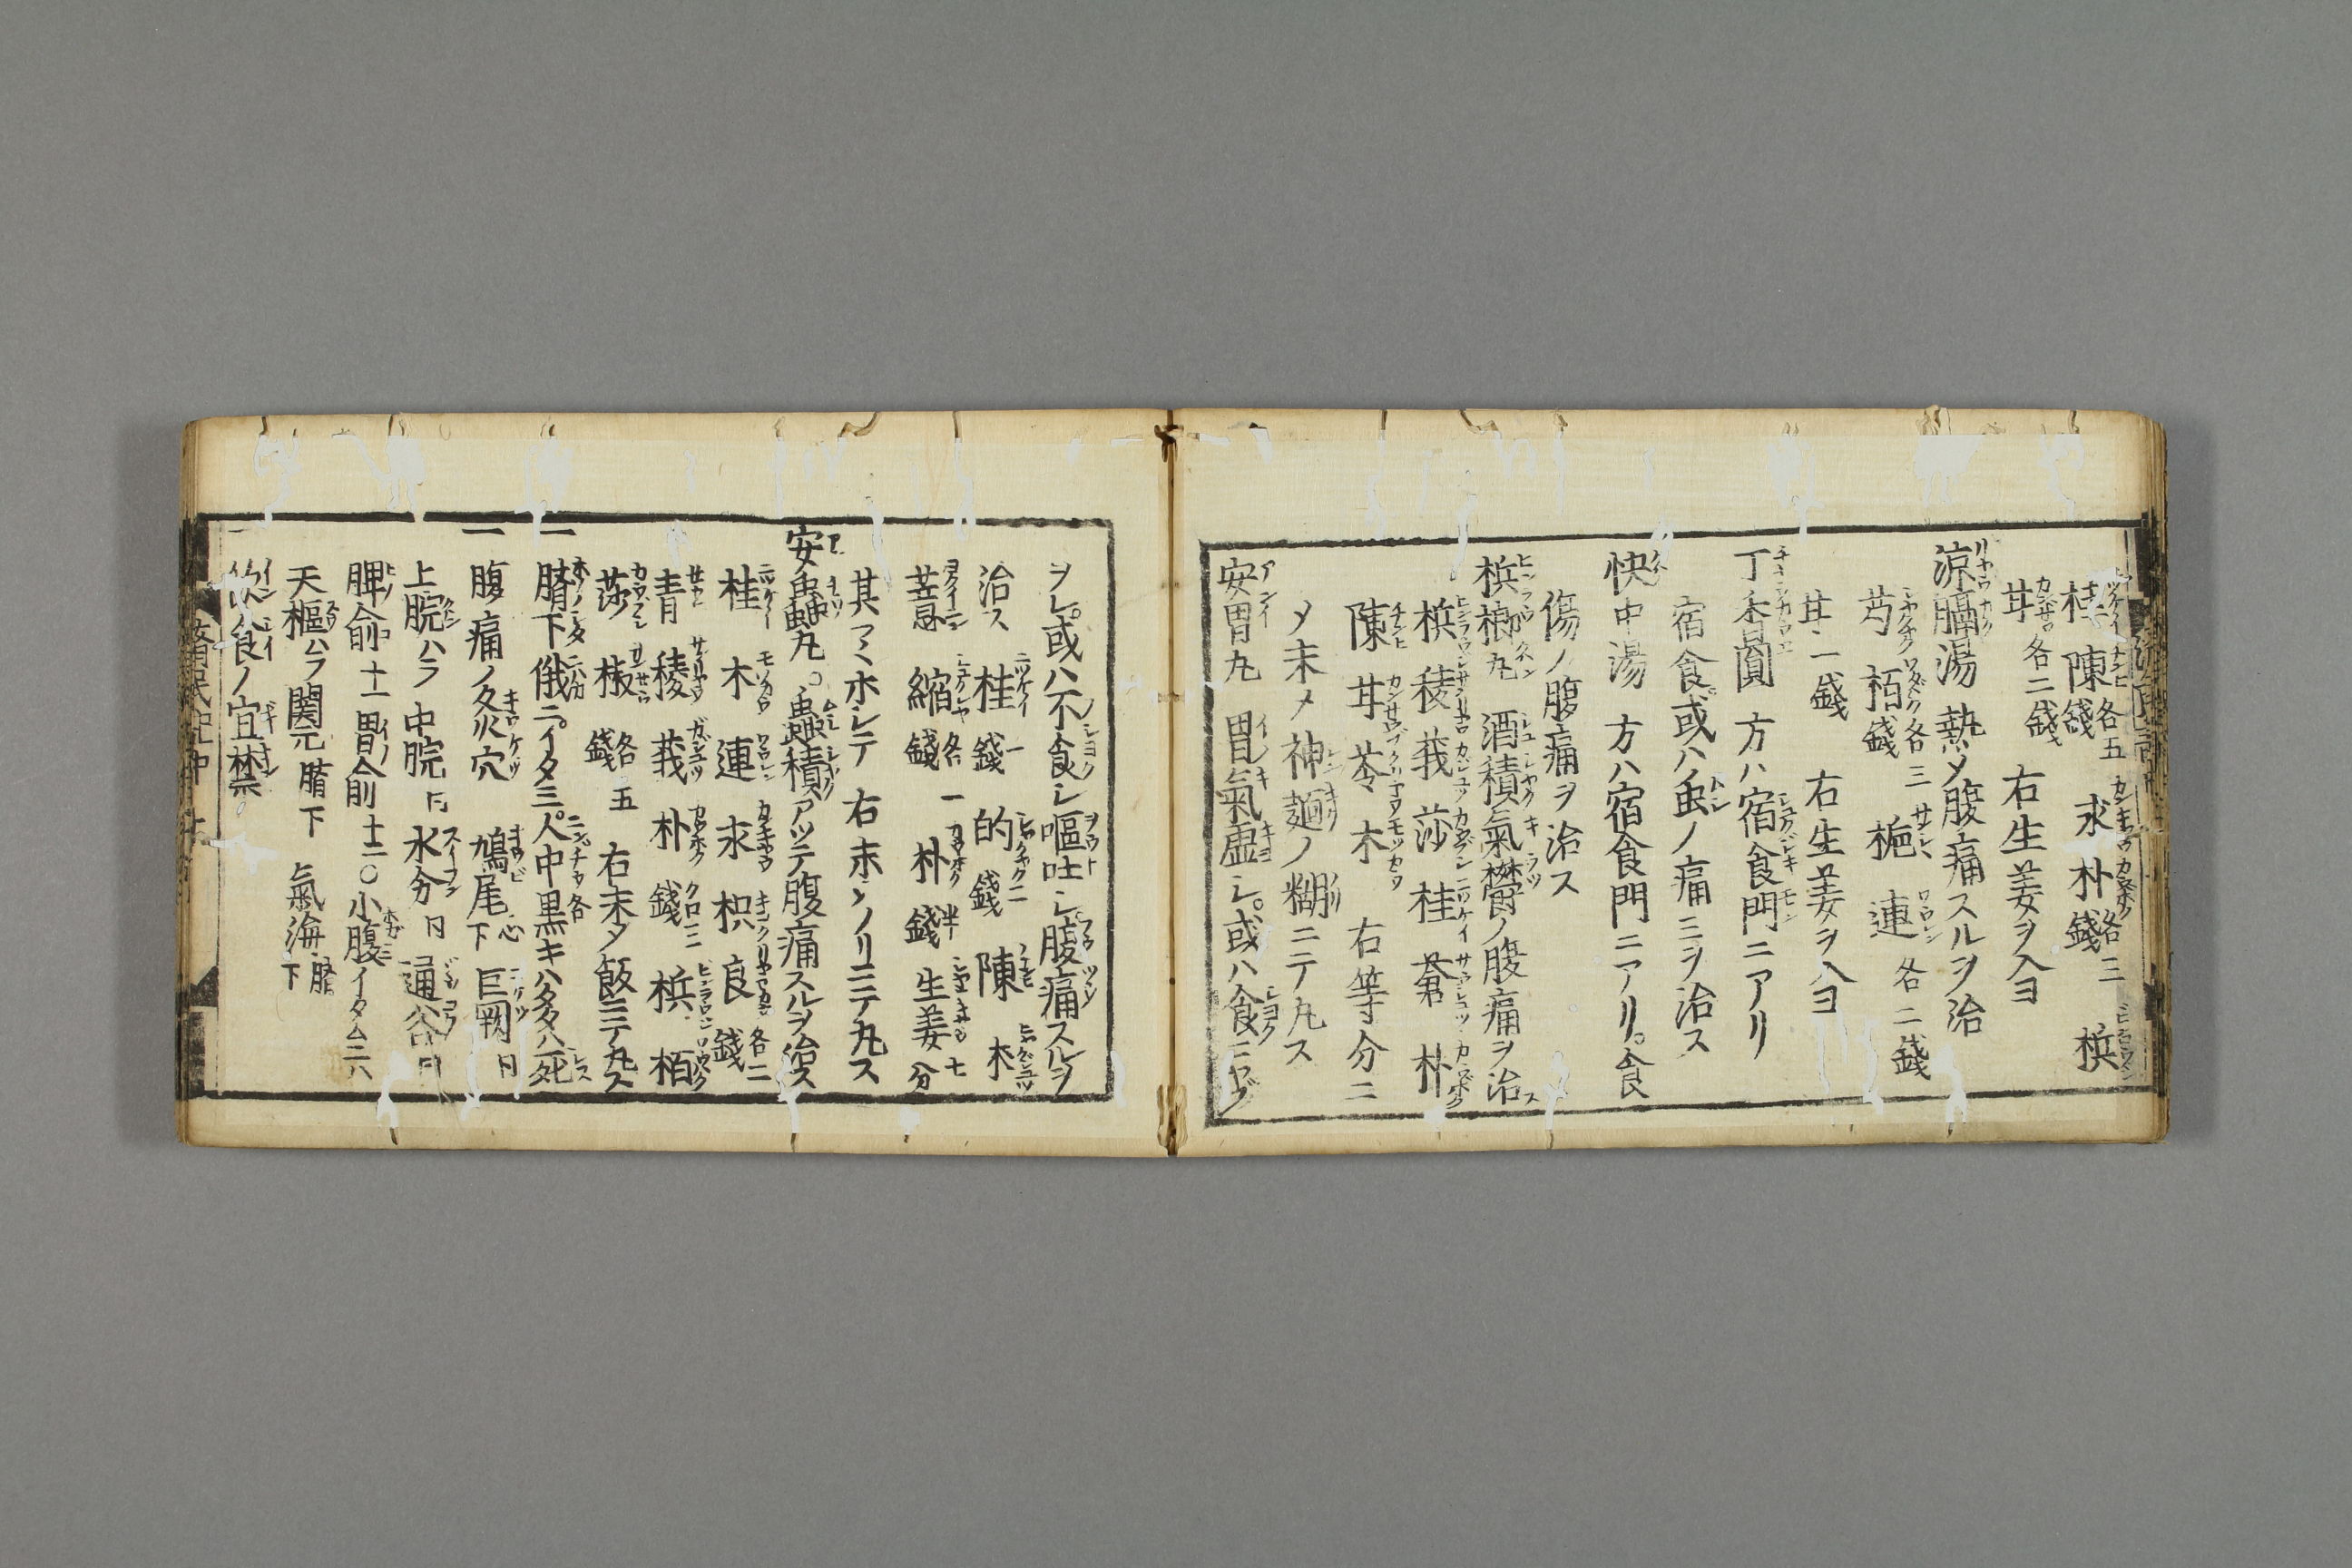 桂 陳 各五錢 求 朴 各三錢 梹
甘 各二錢 右生姜ヲ入ヨ
涼膈湯 熱〆腹痛スルヲ治
芍 栢 各三錢 梔 連 各二錢
甘 一錢 右生姜ヲ入ヨ
丁香圓 方ハ宿食門ニアリ
宿食或ハ虫ノ痛ミヲ治ス
快中湯 方ハ宿食門ニアリ。食
傷ノ腹痛ヲ治ス
梹榔丸 酒積氣欝ノ腹痛ヲ治ス
梹 稜 莪 莎 桂 蒼 朴
陳 甘 苓 木 右等分ニ
〆末〆神麹ノ糊ニテ丸ス
安胃丸 胃氣虚シ。或ハ食ニヤブ
ヲレ。或ハ不食シ嘔吐シ腹痛スルヲ
治ス 桂 一錢 的 二錢 陳 木
薏 縮 各一錢 朴 半錢 生姜 七分
其マヽホシテ 右末シノリニテ丸ス
安蟲丸。蟲積アツテ腹痛スルヲ治ス
桂 木 連 求 枳 良 各二錢
青 稜 莪 朴 錢三 梹 栢
莎 椒 各五錢 右末〆飯ニテ丸ス
一 臍下俄ニイタミ。人中黒キハ多ハ死
一 腹痛ノ灸穴 鳩尾 心下 巨闕 同
上脘 ハラ 中脘 同 水分 同 通谷 同
脾俞 十一 胃俞 十二〇小腹イタムニハ
天樞 ハラ 関元 臍下 氣海 臍下
一 飲食ノ宜禁